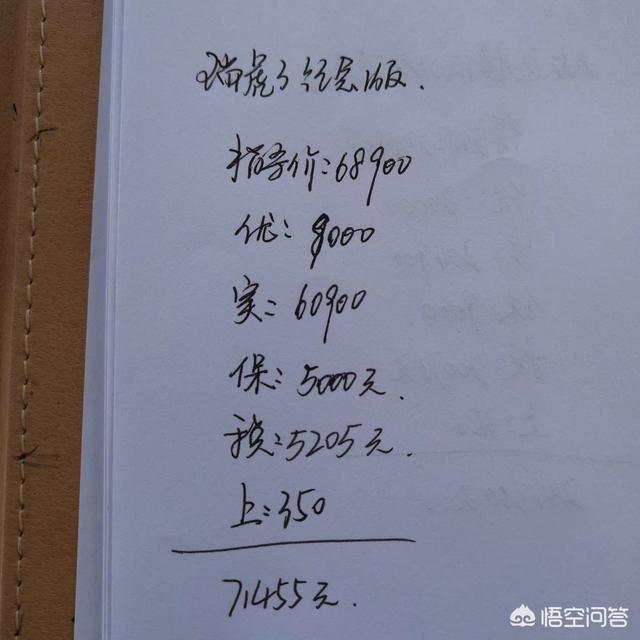 瑞虎3经典版.
指导价:68900
优:8000
实:60900
保:5000元.
税:5205元.
上:350
71455元.
悟空问答